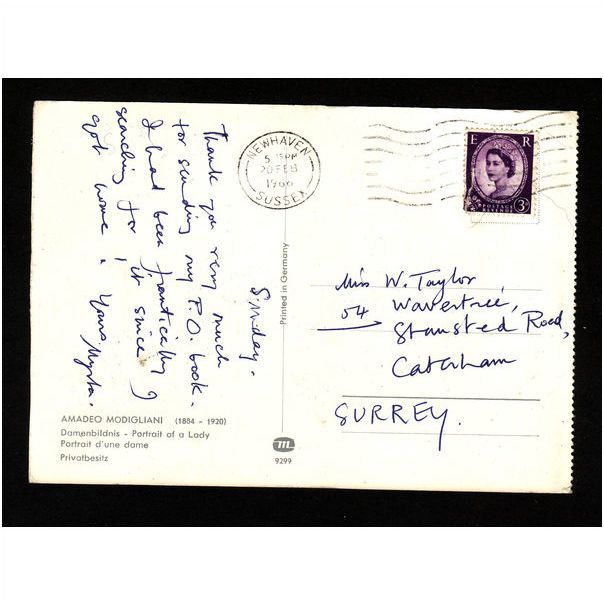 Sunday.
Thank you very much
for sending my P.O. book.
I had been frantically
searching for it since I
got home! Yours,
NEWHAVEN
5 15PM
20 FEB
1966
SUSSEX
E R
POSTAGE
REVENUE
3D
Printed in Germany
Miss W. Taylor
54 Wavertree,
Stansted Road,
Caterham
SURREY.
AMADEO MODIGLIANI (1884 - 1920)
Damenbildnis - Portrait of a Lady
Portrait d'une dame
Privatbesitz
m
9299